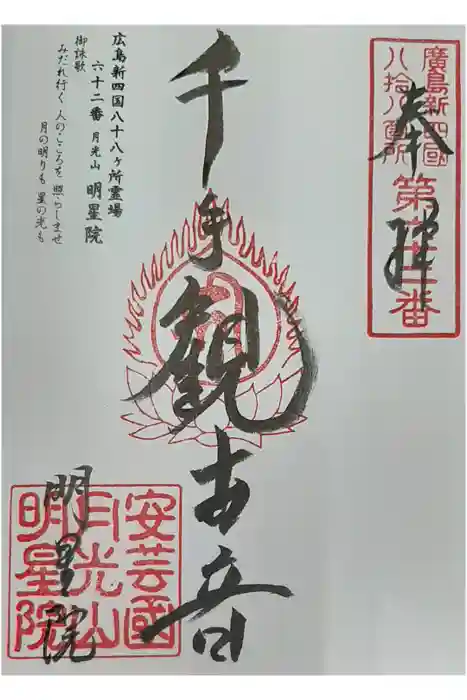 廣島新四國
八拾八箇所
第六十二番
奉拝
千手観世音
明星院
広島新四国八十八ヶ所霊場
六十二番 月光山 明星院
御詠歌
みだれ行く 人のこころを 照らしませ
月の明りも 星の光も
安芸國
月光山
明星院